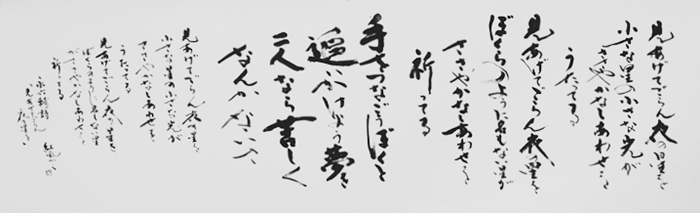 見あげてごらん夜の星を
小さな星の小さな光が
ささやかなしあわせを
うたってる
見あげてごらん夜の星を
ぼくらのように名もない星が
ささやかなしあわせを
祈ってる
手をつなごうぼくと
追いかけよう夢を
二人なら苦しく
なんかないさ
見あげてごらん夜の星を
小さな星の小さな光が
ささやかなしあわせを
うたってる
見あげてごらん夜の星を
ぼくらのように名もない星が
ささやかなしあわせを
祈ってる
見あげてごらん
夜の星を